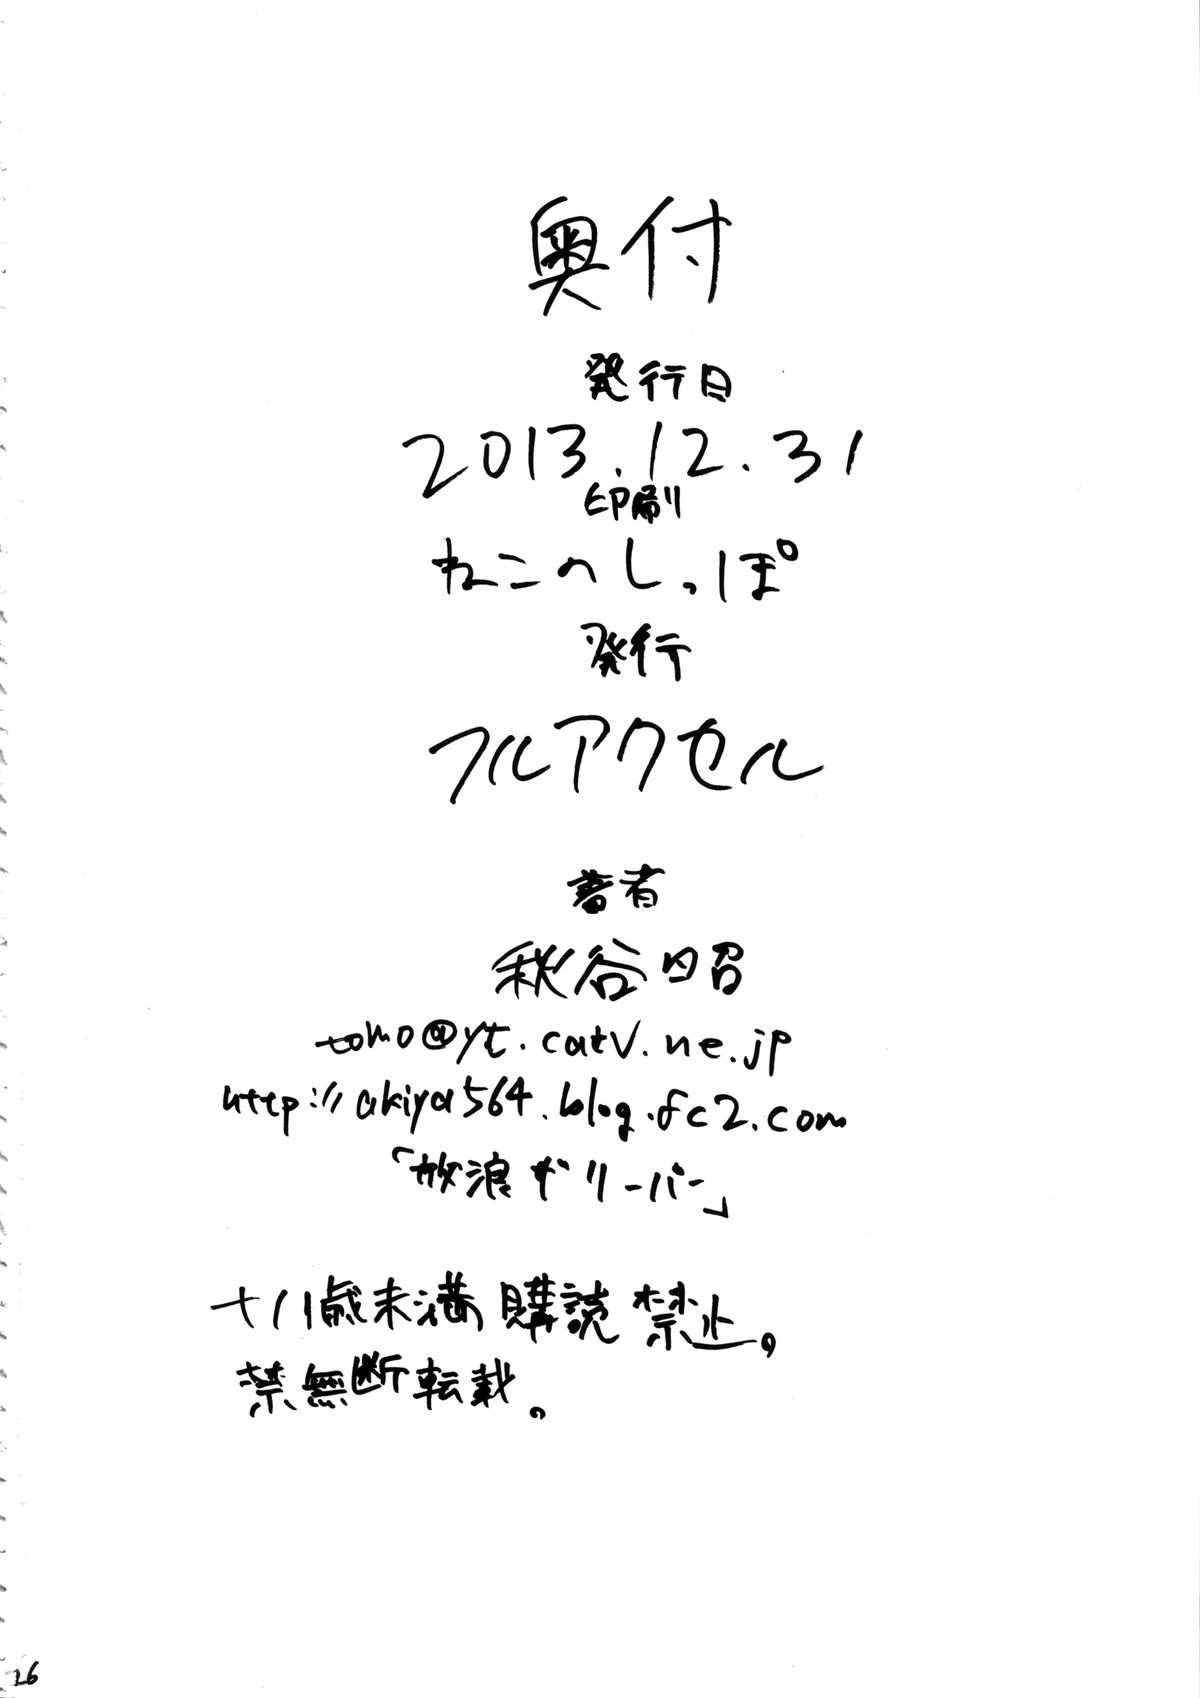 奥付
発行日
2013.12.31
印刷
ねこのしっぽ
発行
フルアクセル
著者
秋谷昭
tomo@yt.catv.ne.jp
http://akiya564.blog.fc2.com
「放浪ガリーバー」
十八歳未満購読禁止。
禁無断転載。
26